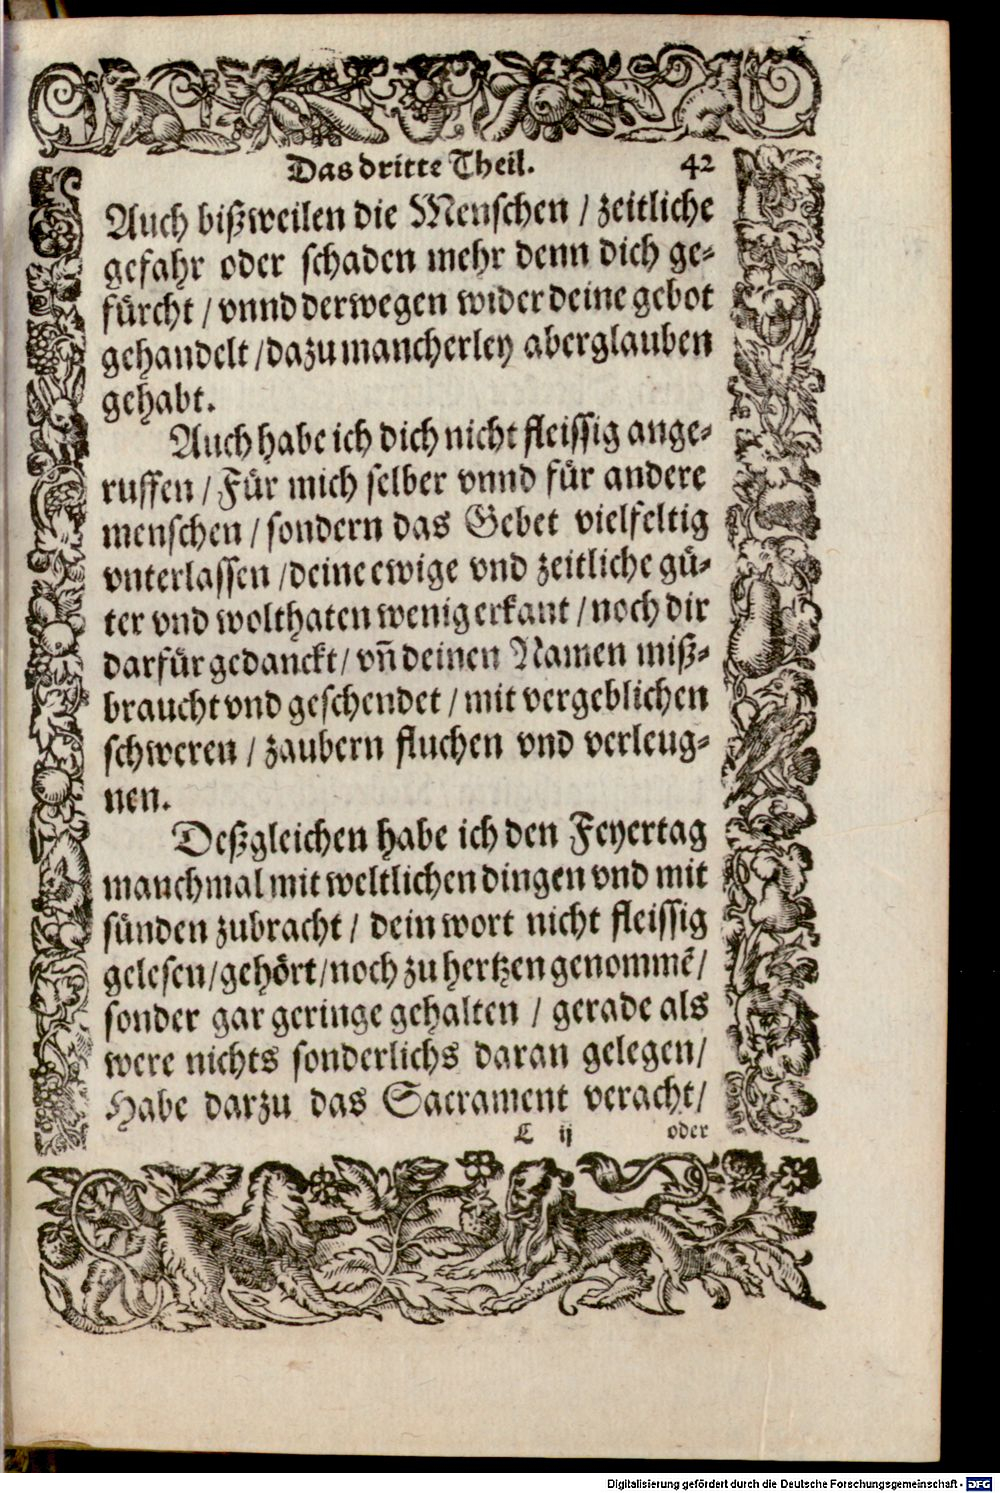 Das dritte Theil. 42
Auch bißweilen die Menschen / zeitliche
gefahr oder schaden mehr denn dich ge-
fürcht / vnnd derwegen wider deine gebot
gehandelt / dazu mancherley aberglauben
gehabt.
Auch habe ich dich nicht fleissig ange-
ruffen / Für mich selber vnnd für andere
menschen / sondern das Gebet vielfeltig
vnterlassen / deine ewige vnd zeitliche gü-
ter vnd wolthaten wenig erkant / noch dir
darfür gedanckt / vñ deinen Namen miß-
braucht vnd geschendet / mit vergeblichen
schweren / zaubern fluchen vnd verleug-
nen.
Deßgleichen habe ich den Feyertag
manchmal mit weltlichen dingen vnd mit
sünden zubracht / dein wort nicht fleissig
gelesen / gehört / noch zu hertzen genommẽ /
sonder gar geringe gehalten / gerade als
were nichts sonderlichs daran gelegen /
Habe darzu das Sacrament veracht /
L ij oder
Digitalisierung gefördert durch die Deutsche Forschungsgemeinschaft - DFG